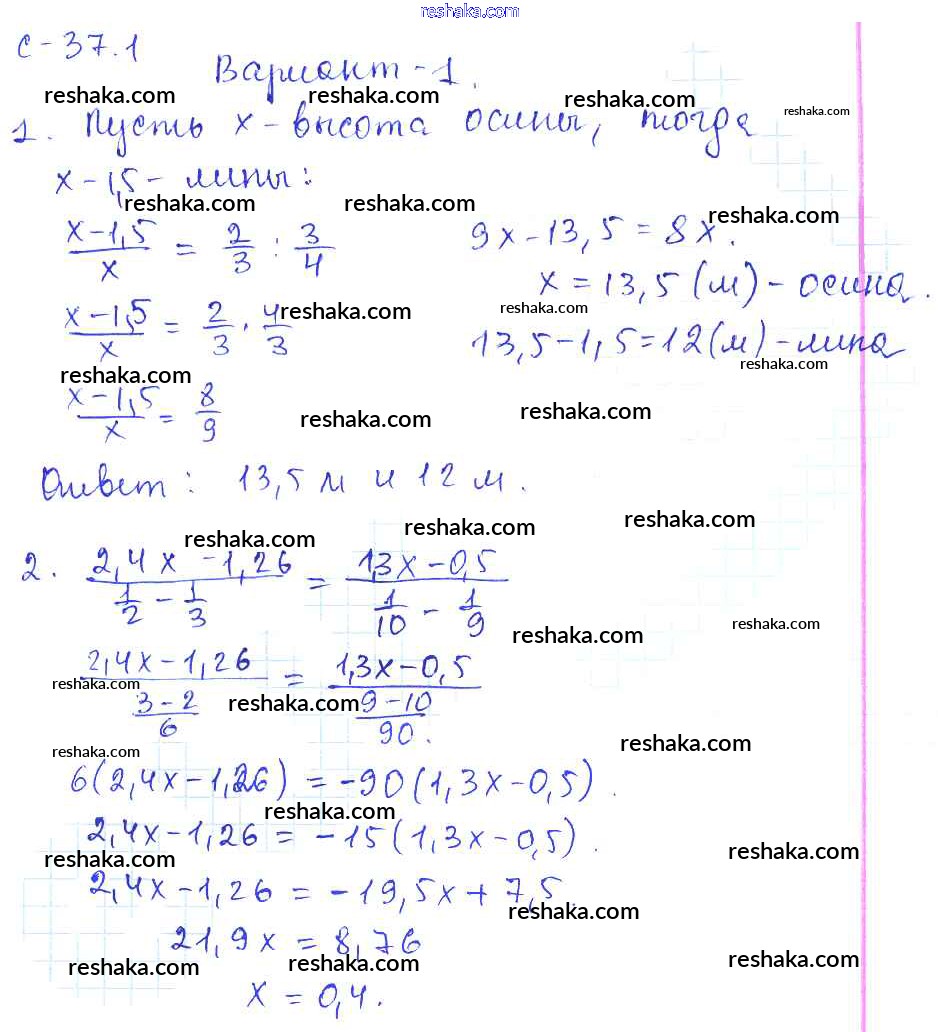 reshaka.com
С-37.1
Вариант-1.
reshaka.com reshaka.com reshaka.com reshaka.com
1. Пусть х-высота осины, тогда
х-1,5-липы:
reshaka.com reshaka.com reshaka.com
(х-1,5)/х = 2/3 : 3/4
9х-13,5=8х.
х=13,5(м)-осина.
(х-1,5)/х = 2/3 · 4/3
reshaka.com reshaka.com
13,5-1,5=12(м)-липа
reshaka.com reshaka.com
(х-1,5)/х = 8/9
reshaka.com reshaka.com
Ответ: 13,5 м и 12 м.
reshaka.com reshaka.com reshaka.com
2. (2,4х-1,26)/(1/2-1/3) = (1,3х-0,5)/(1/10-1/9)
reshaka.com reshaka.com
(2,4х-1,26)/((3-2)/6) = (1,3х-0,5)/((9-10)/90).
reshaka.com reshaka.com
reshaka.com reshaka.com
6(2,4х-1,26)=-90(1,3х-0,5).
reshaka.com
2,4х-1,26=-15(1,3х-0,5).
reshaka.com reshaka.com
2,4х-1,26=-19,5х+7,5.
reshaka.com
21,9х=8,76
reshaka.com reshaka.com reshaka.com
х=0,4.